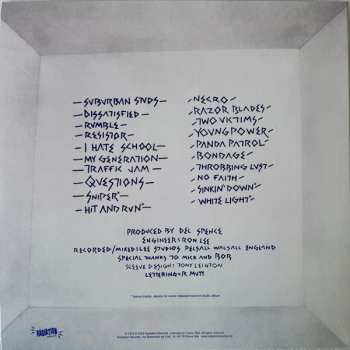 —SUBURBAN STUDS—
—DISSATISFIED—
—RUMBLE—
—RESISTOR—
—I HATE SCHOOL—
—MY GENERATION—
—TRAFFIC JAM—
—QUESTIONS—
—SNIPER*—
—HIT AND RUN*—
—NECRO—
—RAZOR BLADES—
—TWO VICTIMS—
—YOUNG POWER—
—PANDA PATROL*—
—BONDAGE—
—THROBBING LUST—
—NO FAITH—
—SINKIN' DOWN*—
—WHITE LIGHT*—
PRODUCED BY DEL SPENCE
ENGINEER: RON LEE
RECORDED/MIXED: LEE STUDIOS PELSALL WALSALL ENGLAND
SPECIAL THANKS TO MICK AND BOB
SLEEVE DESIGN: TONY LEIGHTON
LETTERING: R MUTT
RADIATION